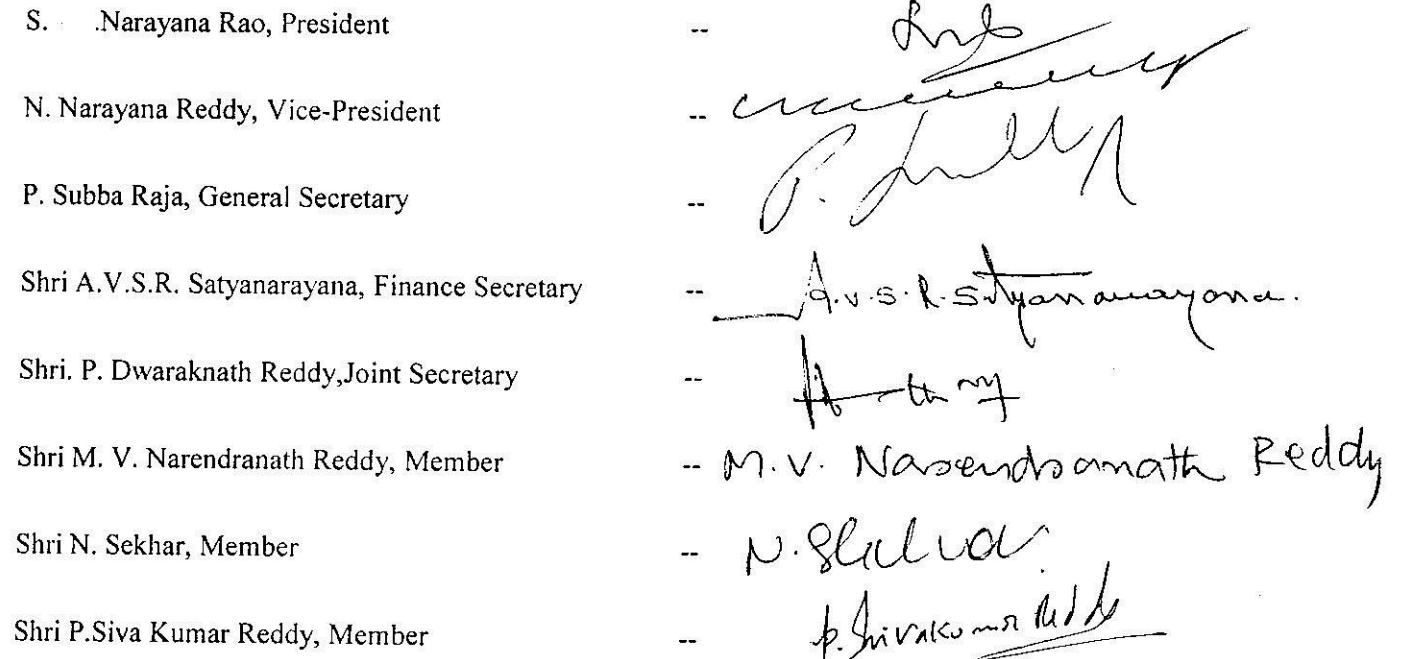 S. .Narayana Rao, President --
N. Narayana Reddy, Vice-President --
P. Subba Raja, General Secretary --
Shri A.V.S.R. Satyanarayana, Finance Secretary -- A.V.S.R. Satyanarayana.
Shri. P. Dwaraknath Reddy,Joint Secretary --
Shri M. V. Narendranath Reddy, Member -- M.V. Narendranath Reddy
Shri N. Sekhar, Member -- N.
Shri P.Siva Kumar Reddy, Member -- P. Sivakumar Reddy